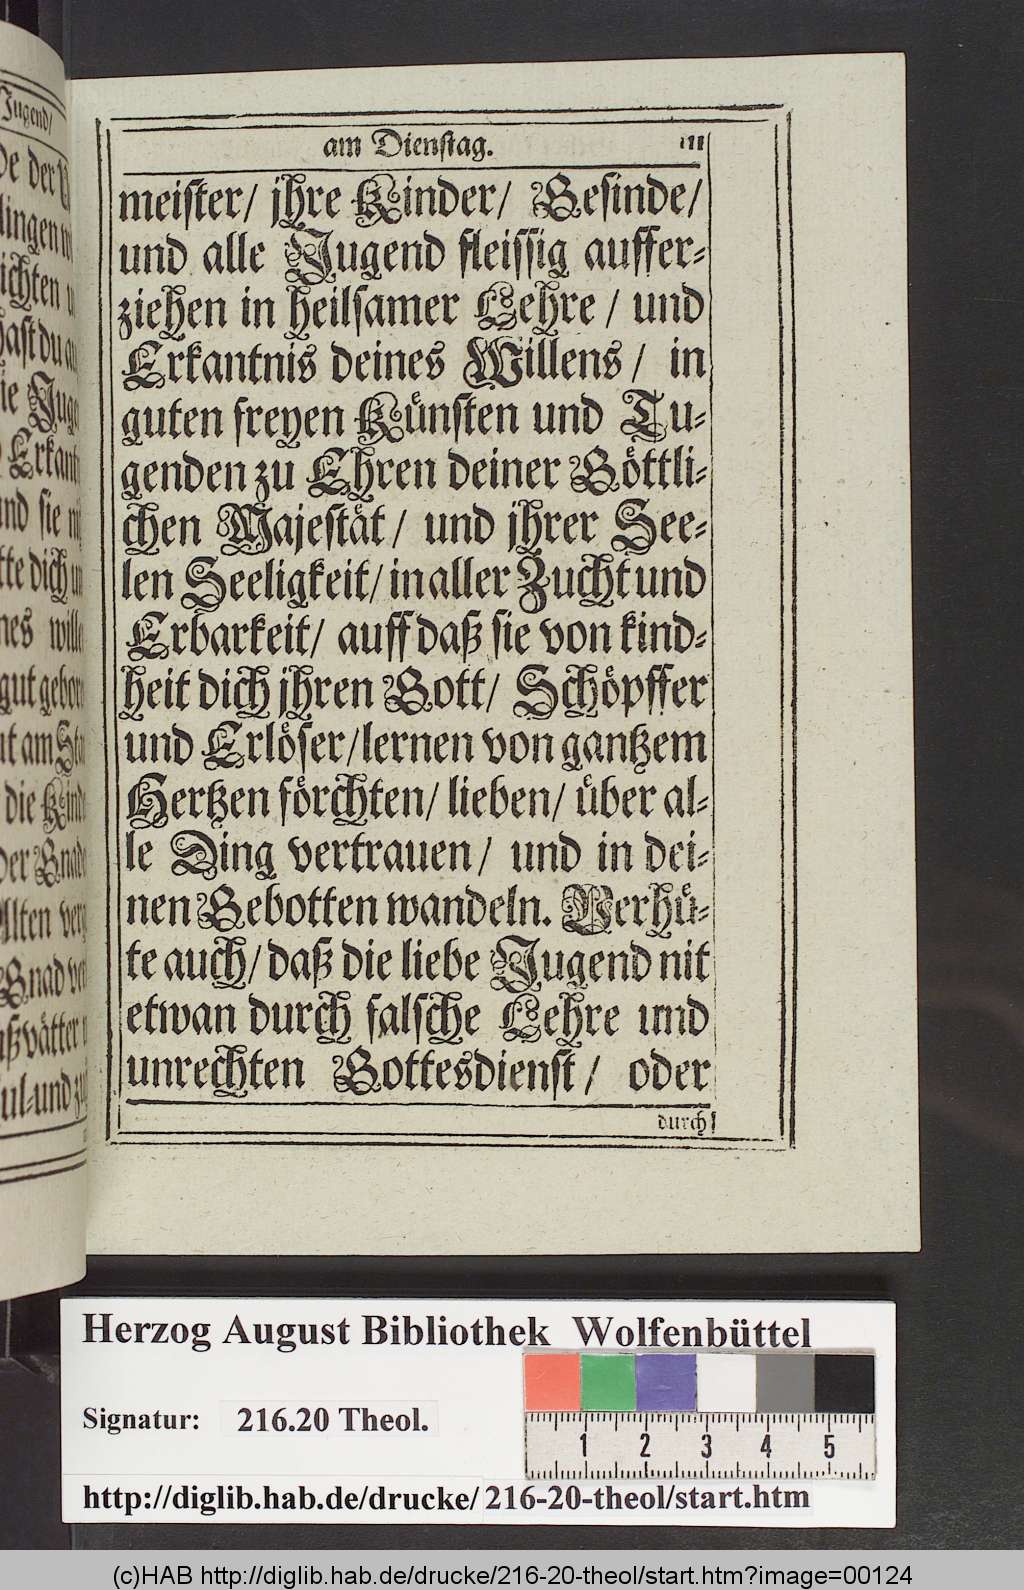 Jugend/
am Dienstag. 111
meister/ jhre Kinder/ Gesinde/
und alle Jugend fleissig auffer-
ziehen in heilsamer Lehre / und
Erkantnis deines Willens / in
guten freyen Künsten und Tu-
genden zu Ehren deiner Göttli-
chen Majestät / und jhrer See-
len Seeligkeit/ in aller Zucht und
Erbarkeit/ auff daß sie von kind-
heit dich jhren Gott/ Schöpffer
und Erlöser/ lernen von gantzem
Hertzen förchten/ lieben/ über al-
le Ding vertrauen / und in dei-
nen Gebotten wandeln. Verhü-
te auch/ daß die liebe Jugend nit
etwan durch falsche Lehre und
unrechten Gottesdienst / oder
durch
Herzog August Bibliothek Wolfenbüttel
Signatur: 216.20 Theol.
1 2 3 4 5
http://diglib.hab.de/drucke/216-20-theol/start.htm
(c)HAB http://diglib.hab.de/drucke/216-20-theol/start.htm?image=00124